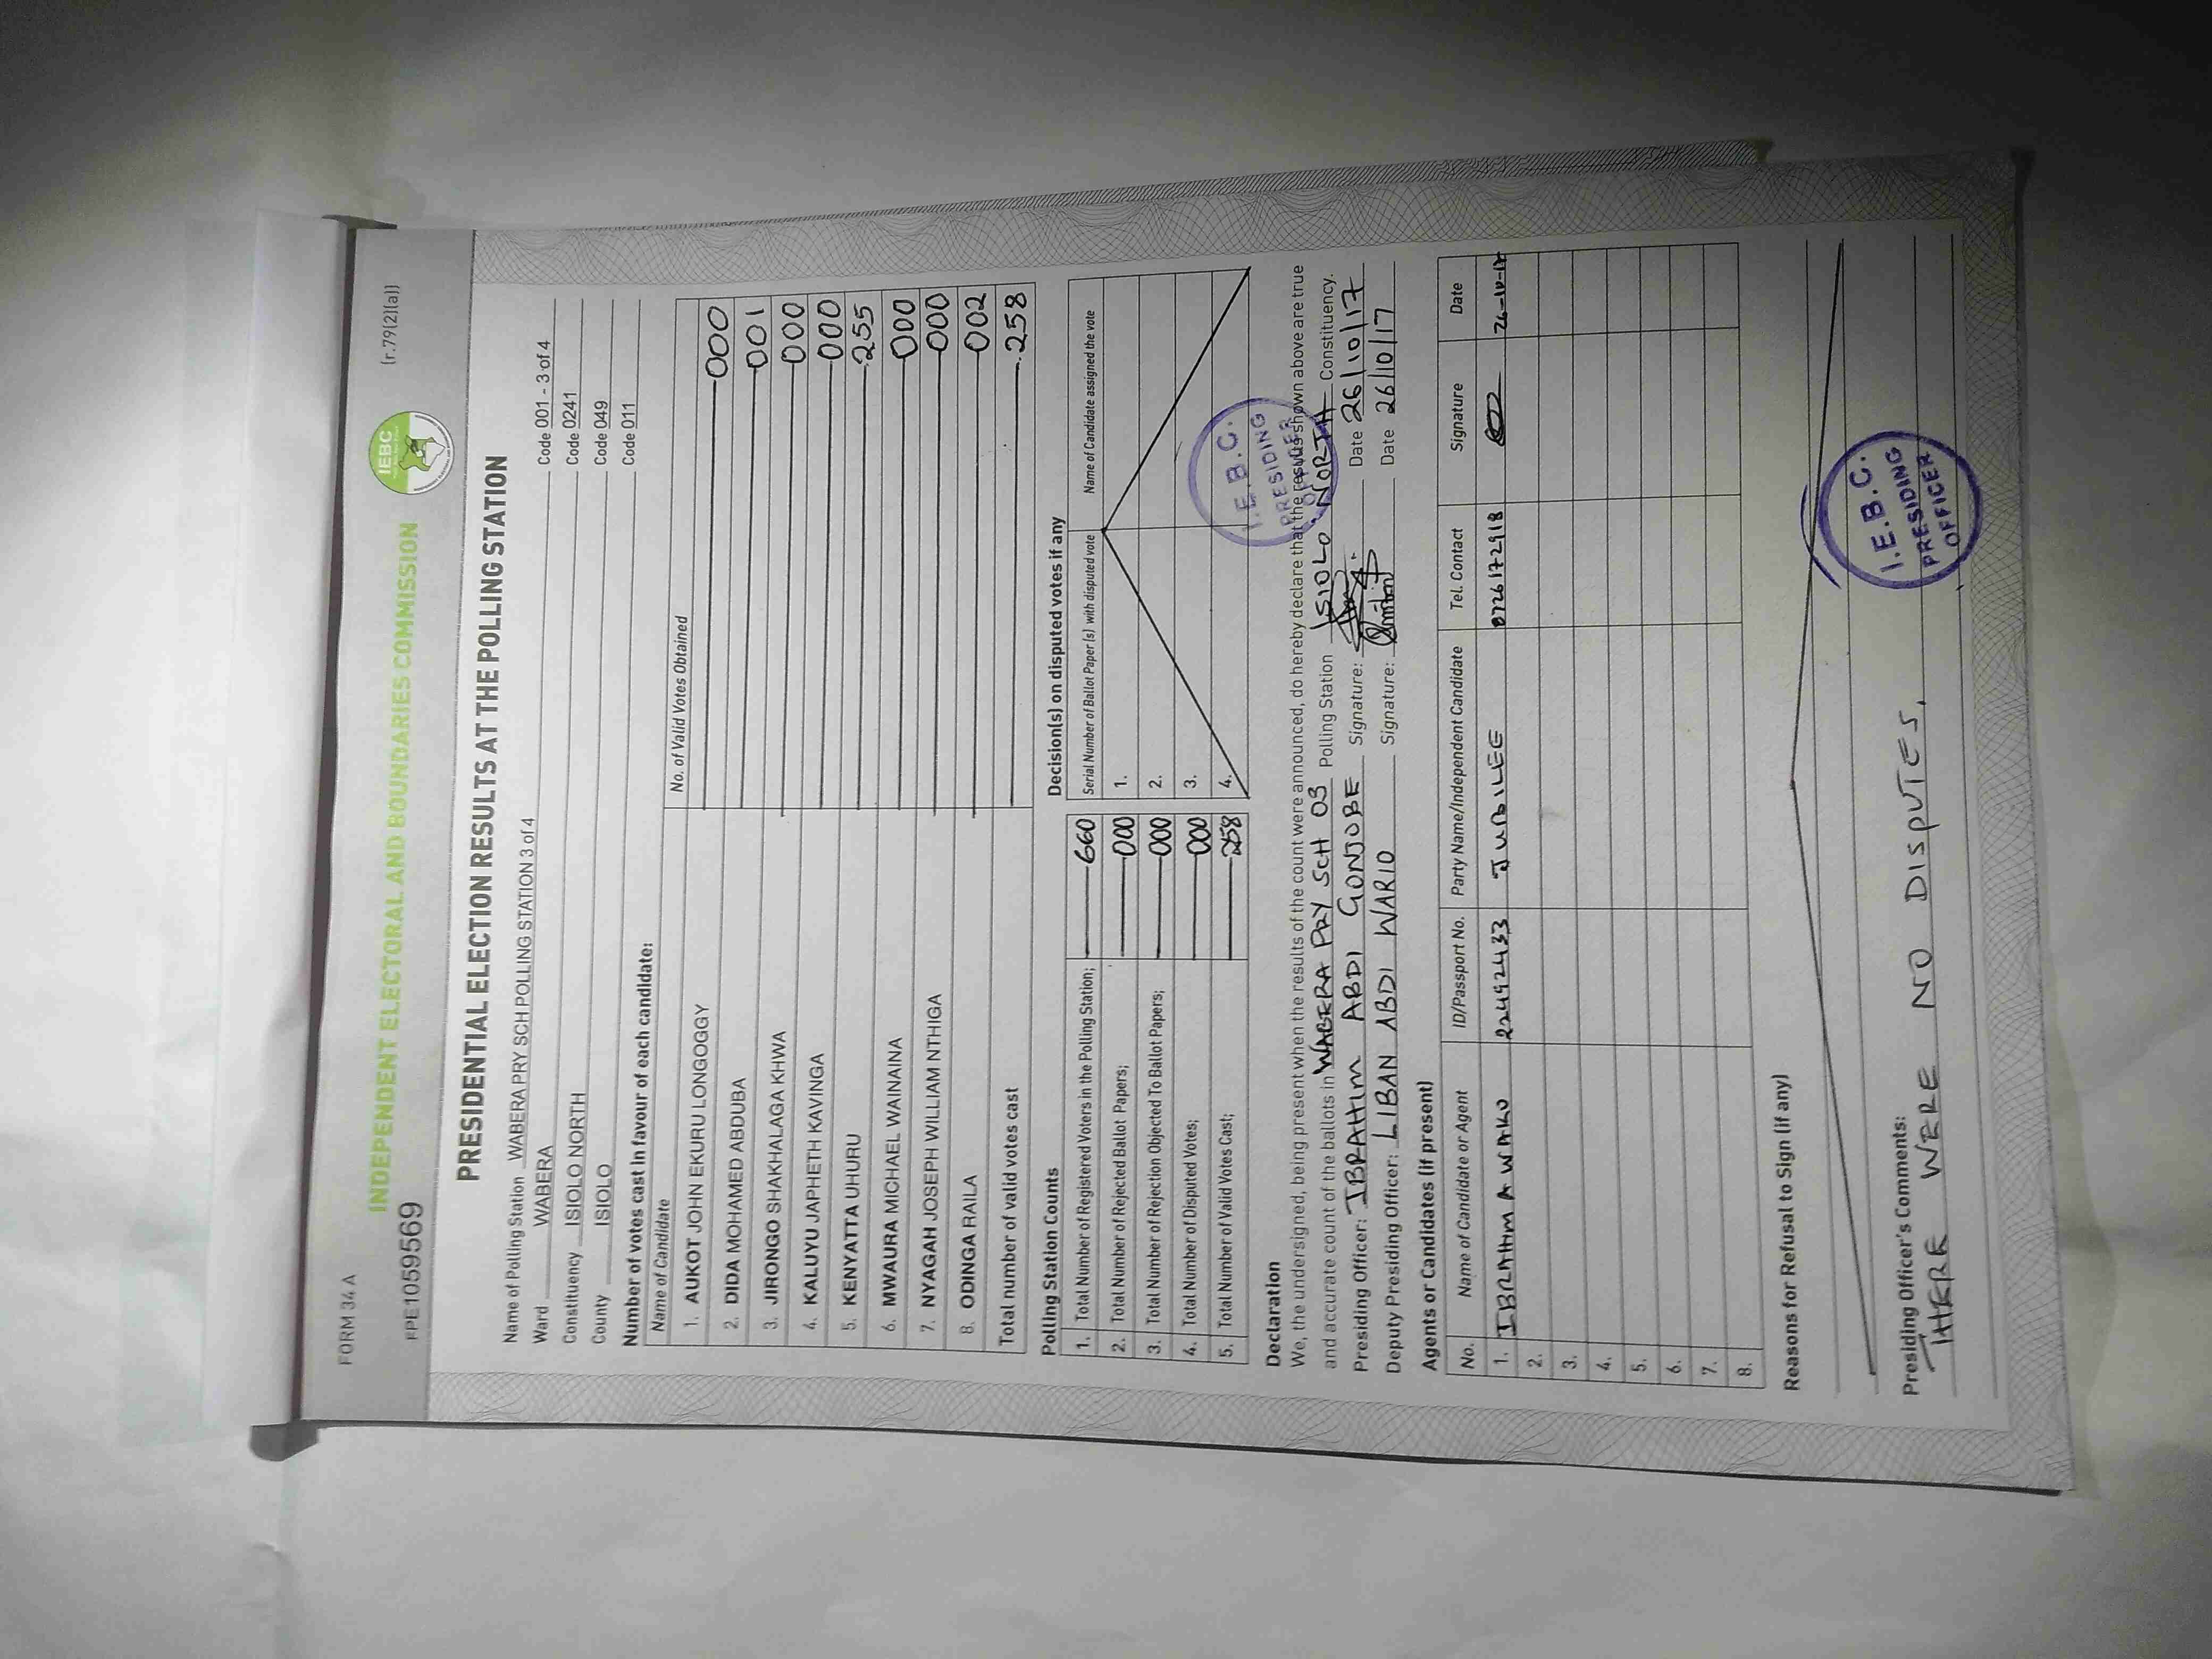 FORM 34 A
(r.79(2)(a))
INDEPENDENT ELECTORAL AND BOUNDARIES COMMISSION
IEBC
FPE1059569
PRESIDENTIAL ELECTION RESULTS AT THE POLLING STATION
Name of Polling Station WABERA PRY SCH POLLING STATION 3 of 4 Code 001 - 3 of 4
Ward WABERA Code 0241
Constituency ISIOLO NORTH Code 049
County ISIOLO Code 011
Number of votes cast in favour of each candidate:
Name of Candidate No. of Valid Votes Obtained
1. AUKOT JOHN EKURU LONGOGGY 000
2. DIDA MOHAMED ABDUBA 001
3. JIRONGO SHAKHALAGA KHWA 000
4. KALUYU JAPHETH KAVINGA 000
5. KENYATTA UHURU 255
6. MWAURA MICHAEL WAINAINA 000
7. NYAGAH JOSEPH WILLIAM NTHIGA 000
8. ODINGA RAILA 002
Total number of valid votes cast 258
Polling Station Counts
1. Total Number of Registered Voters in the Polling Station; 660
2. Total Number of Rejected Ballot Papers; 000
3. Total Number of Rejection Objected To Ballot Papers; 000
4. Total Number of Disputed Votes; 000
5. Total Number of Valid Votes Cast; 258
Decision(s) on disputed votes if any
Serial Number of Ballot Paper(s) with disputed vote Name of Candidate assigned the vote
1.
2.
3.
4.
I.E.B.C.
PRESIDING
OFFICER
Declaration
We, the undersigned, being present when the results of the count were announced, do hereby declare that the results shown above are true
and accurate count of the ballots in WABERA PRY SCH 03 Polling Station ISIOLO NORTH Constituency.
Presiding Officer: IBRAHIM ABDI GONJOBE Signature: Date 26/10/17
Deputy Presiding Officer: LIBAN ABDI WARIO Signature: Date 26/10/17
Agents or Candidates (if present)
No. Name of Candidate or Agent ID/Passport No. Party Name/Independent Candidate Tel. Contact Signature Date
1. IBRAHIM A WAKO 22492433 JUBILEE 0726172918
2.
3.
4.
5.
6.
7.
8.
Reasons for Refusal to Sign (if any)
Presiding Officer's Comments:
THERE WERE NO DISPUTES.
I.E.B.C.
PRESIDING
OFFICER